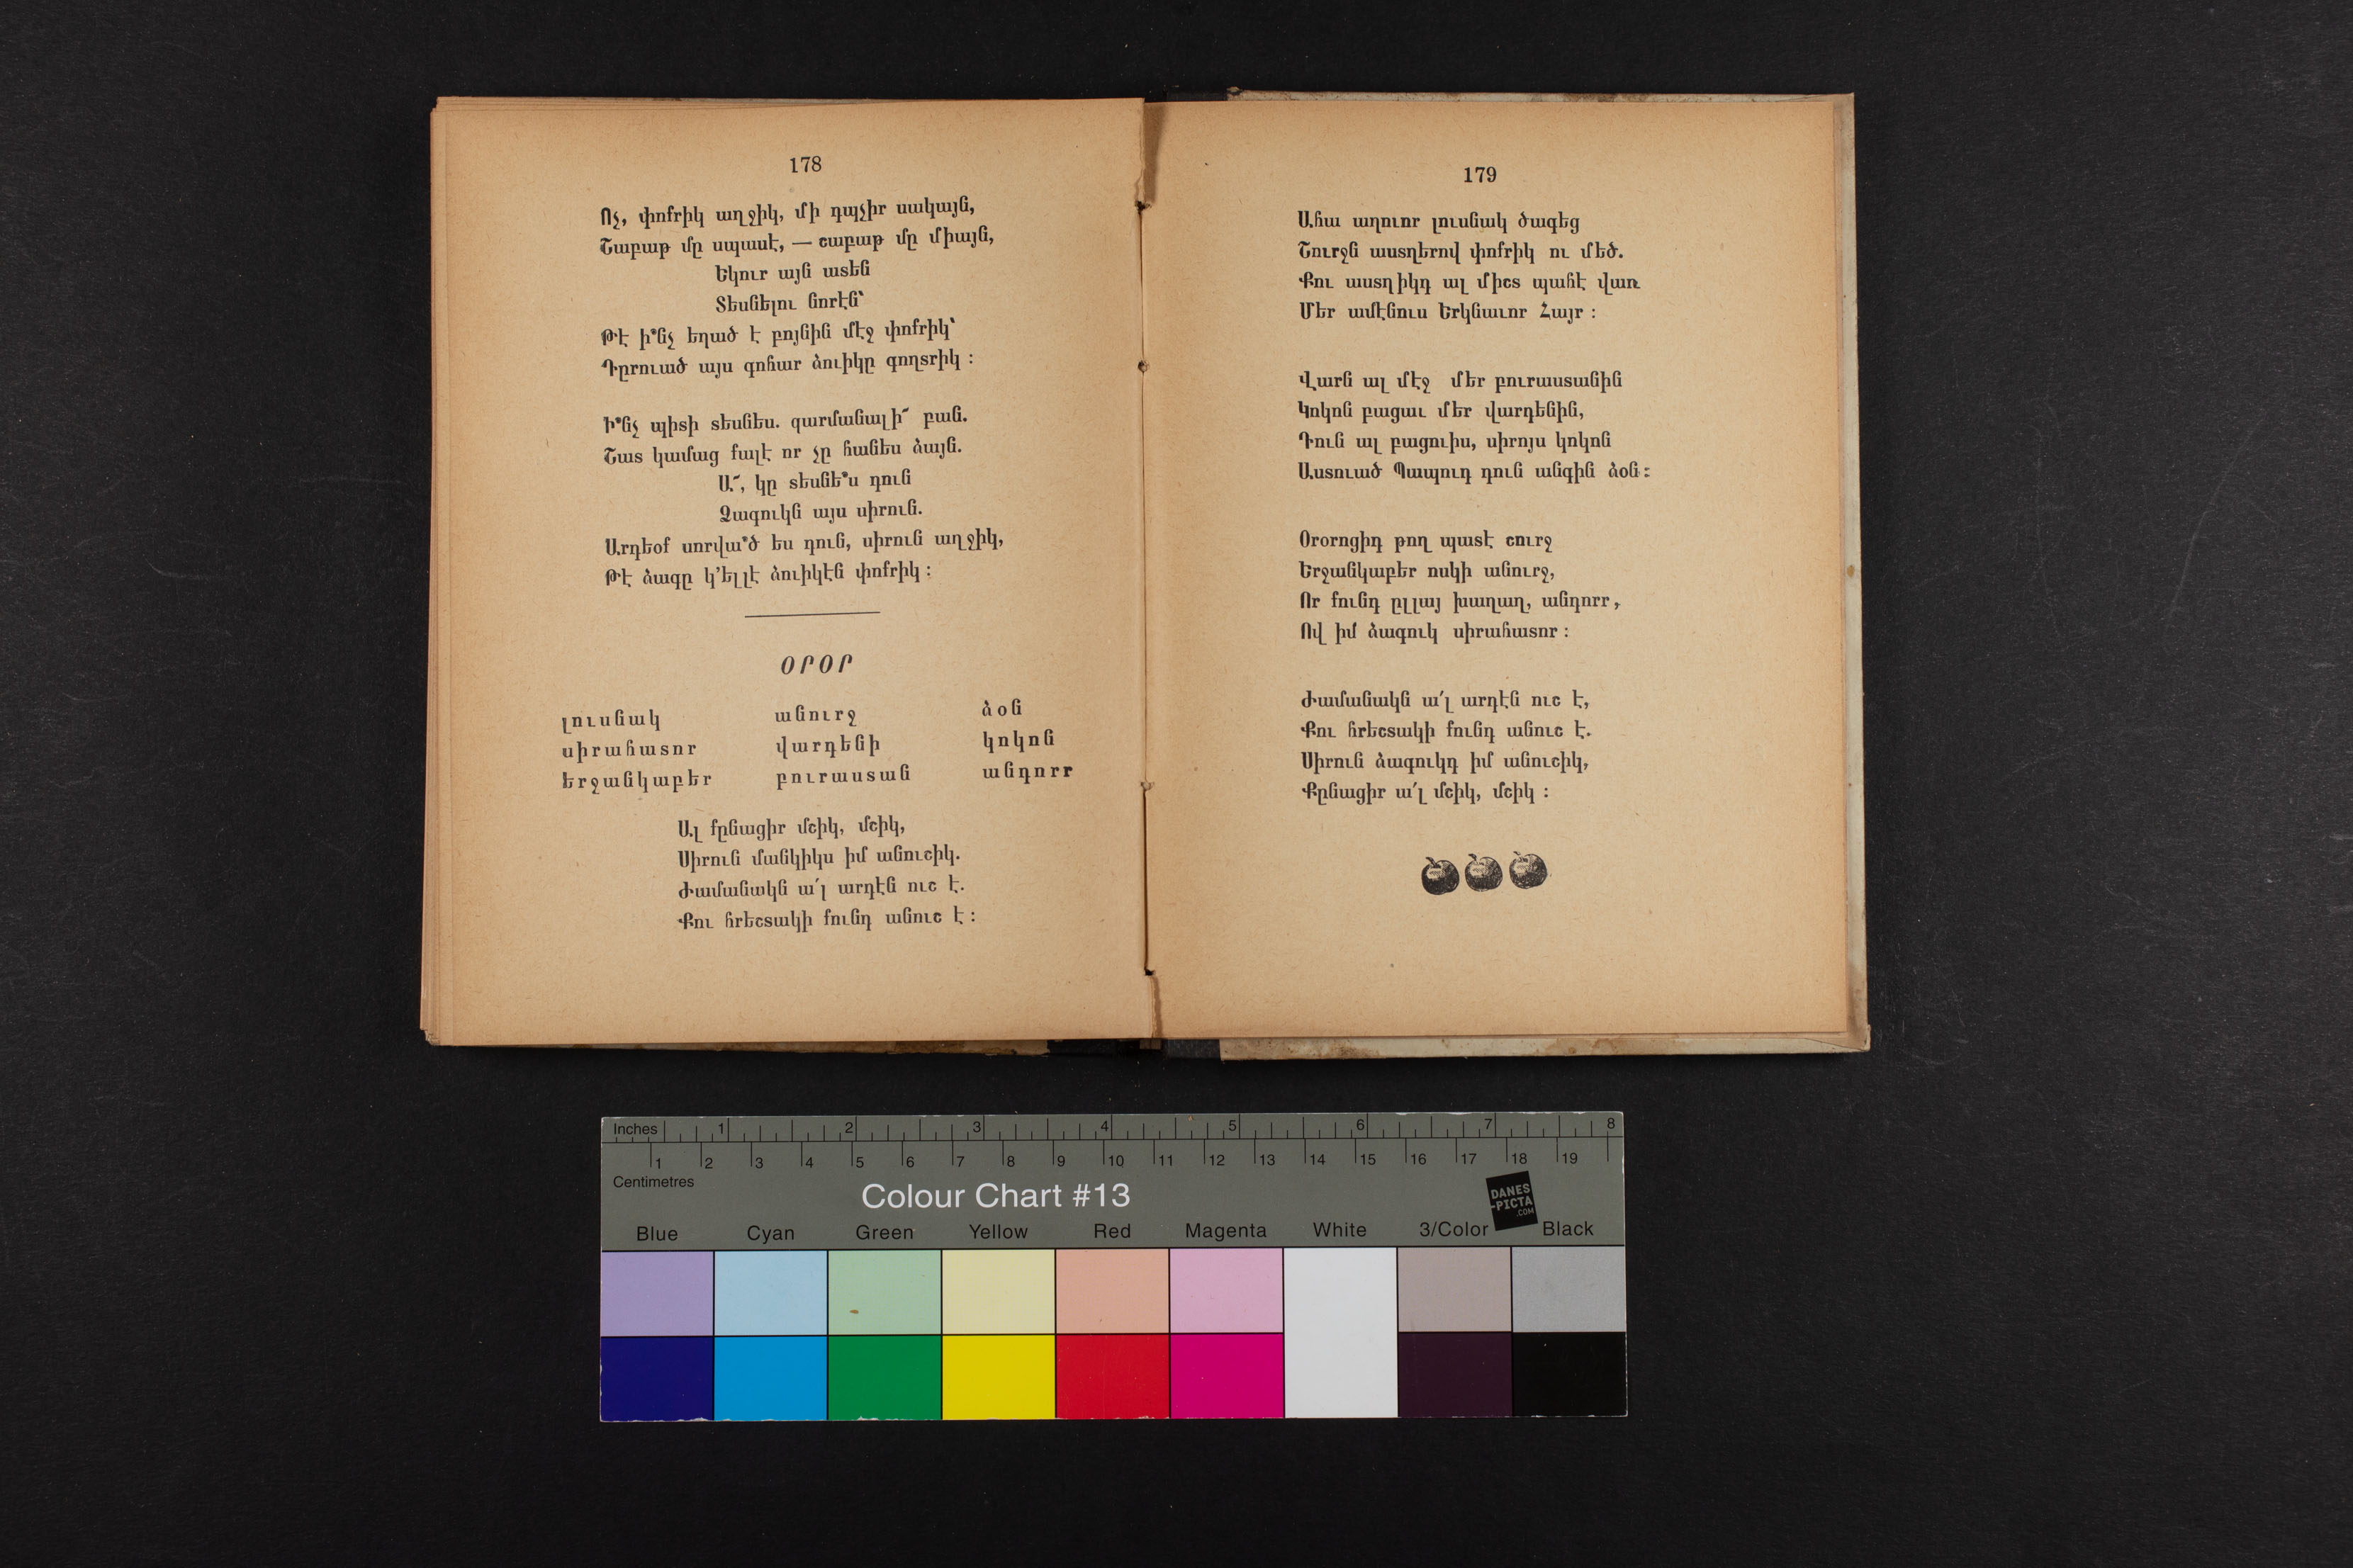 178
Ոչ, փոքրիկ աղջիկ, մի դպչիր սակայն,
Շաբաթ մը սպասէ, — շաբաթ մը միայն,
Եկուր այն ատեն
Տեսնելու նորէն՝
Թէ ի՞նչ եղած է բոյնին մէջ փոքրիկ՝
Դըրուած այս գոհար ձուիկը գողտրիկ ։
Ի՞նչ պիտի տեսնես. զարմանալի՜ բան.
Շատ կամաց քալէ որ չը հանես ձայն.
Ա՜, կը տեսնե՞ս դուն
Ձագուկն այս սիրուն.
Արդեօք սորվա՞ծ ես դուն, սիրուն աղջիկ,
Թէ ձագը կ՚ելլէ ձուիկէն փոքրիկ ։
ՕՐՕՐ
լուսնակ անուրջ ձօն
սիրահատոր վարդենի կոկոն
երջանկաբեր բուրաստան անդորր
Ալ քընացիր մշիկ, մշիկ,
Սիրուն մանկիկս իմ անուշիկ.
Ժամանակն ա՛լ արդէն ուշ է.
Քու հրեշտակի քունդ անուշ է ։
179
Ահա աղուոր լուսնակ ծագեց
Շուրջն աստղերով փոքրիկ ու մեծ.
Քու աստղիկդ ալ միշտ պահէ վառ
Մեր ամէնուս Երկնաւոր Հայր ։
Վարն ալ մէջ մեր բուրաստանին
Կոկոն բացաւ մեր վարդենին,
Դուն ալ բացուիս, սիրոյս կոկոն
Աստուած Պապուդ դուն անգին ձօն ։
Օրօրոցիդ թող պատէ շուրջ
Երջանկաբեր ոսկի անուրջ,
Որ քունդ ըլլայ խաղաղ, անդորր,
Ով իմ ձագուկ սիրահատոր ։
Ժամանակն ա՛լ արդէն ուշ է,
Քու հրեշտակի քունդ անուշ է.
Սիրուն ձագուկդ իմ անուշիկ,
Քընացիր ա՛լ մշիկ, մշիկ ։
Inches 1 2 3 4 5 6 7 8
1 2 3 4 5 6 7 8 9 10 11 12 13 14 15 16 17 18 19
Centimetres
Colour Chart #13
DANES
-PICTA
.COM
Blue Cyan Green Yellow Red Magenta White 3/Color Black